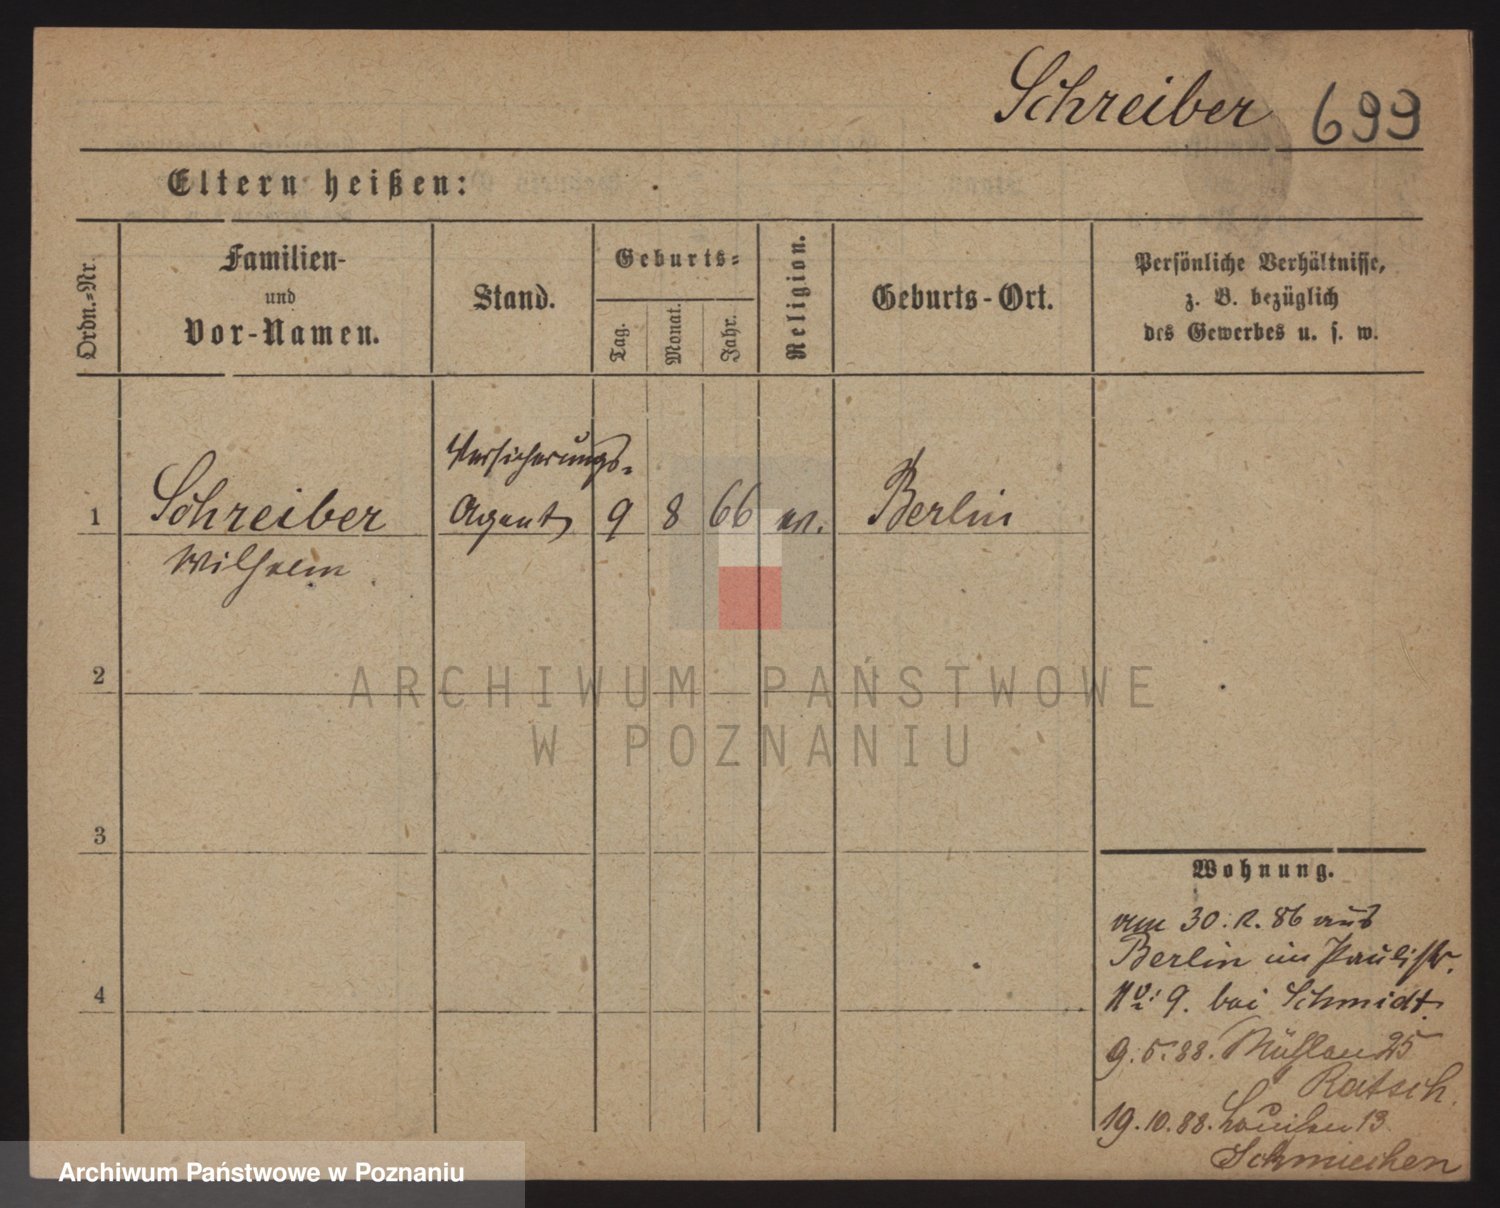 Schreiber 699
Eltern heißen:
Ordn.-Nr.
Familien-
und
Vor-Namen.
Stand.
Geburts-
Tag.
Monat.
Jahr.
Religion.
Geburts-Ort.
Persönliche Verhältnisse,
z. B. bezüglich
des Gewerbes u. s. w.
Versicherungs-
1 Schreiber Agent 9 8 66 ev. Berlin
Wilhelm
2
ARCHIWUM PAŃSTWOWE
W POZNANIU
3
Wohnung.
am 30. 86 aus
Berlin in Paulistr.
4
No: 9. bei Schmidt.
9.5.88. Mühlen 25
Ratsch.
19.10.88. Louisen 13
Schmiechen
Archiwum Państwowe w Poznaniu